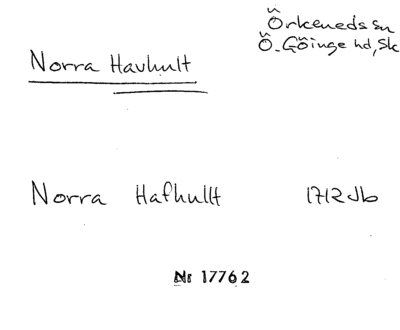 Örkeneds sn
Ö. Göinge hd, Sk
Norra Havhult
Norra Hafhullt 1712 Jb
Nr 17762